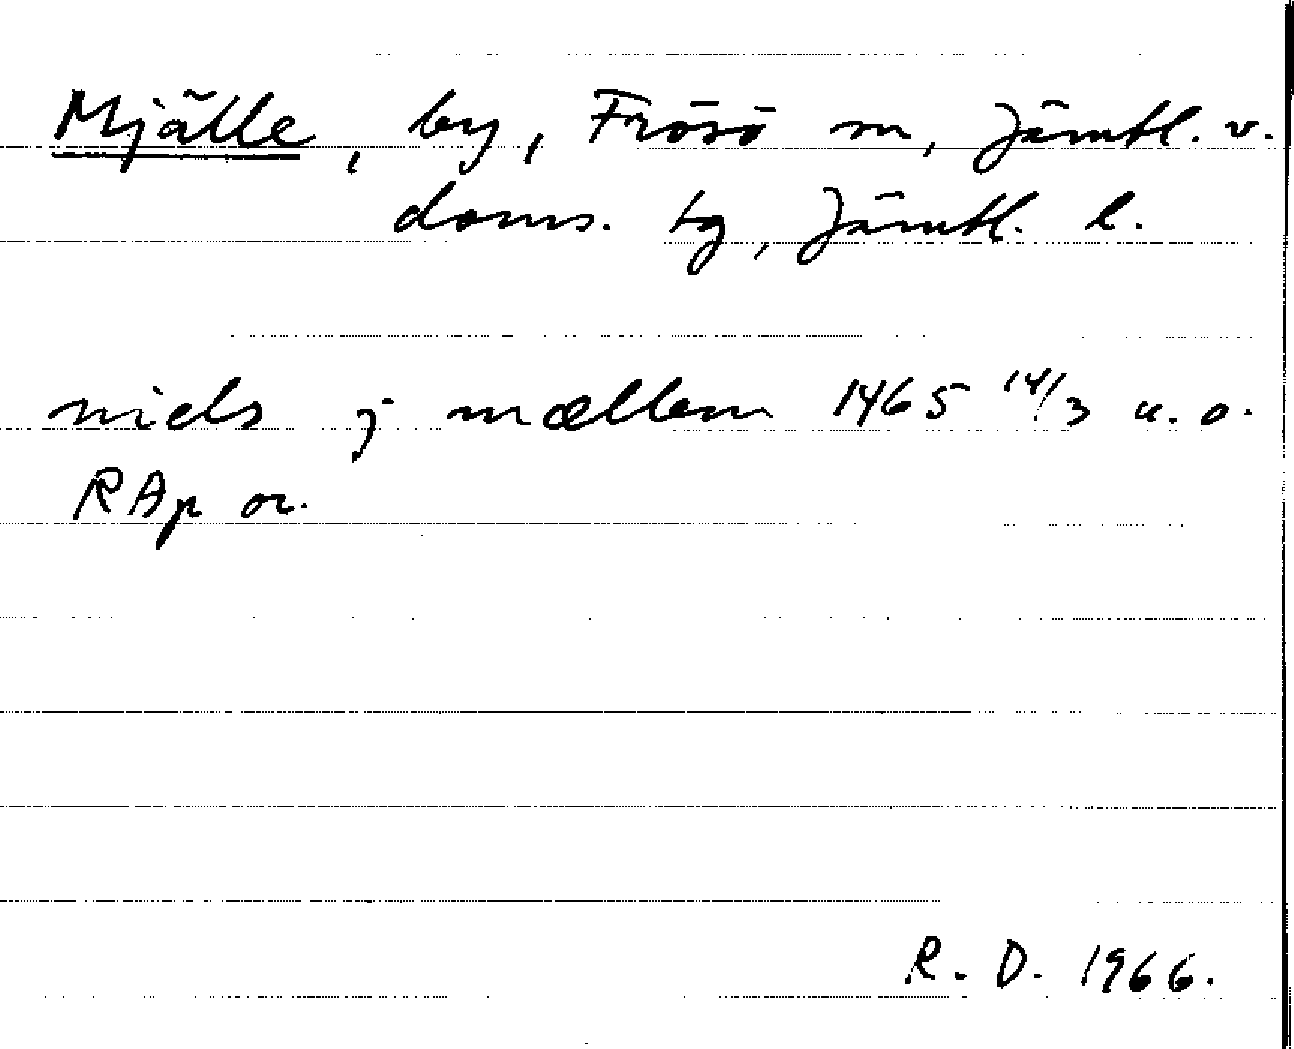 Mjälle, by, Frösö sn, Jämtl. v.
doms. tg, Jämtl. l.
niels j mællem 1465 14/3 u. o.
RAp or.
R. D. 1966.